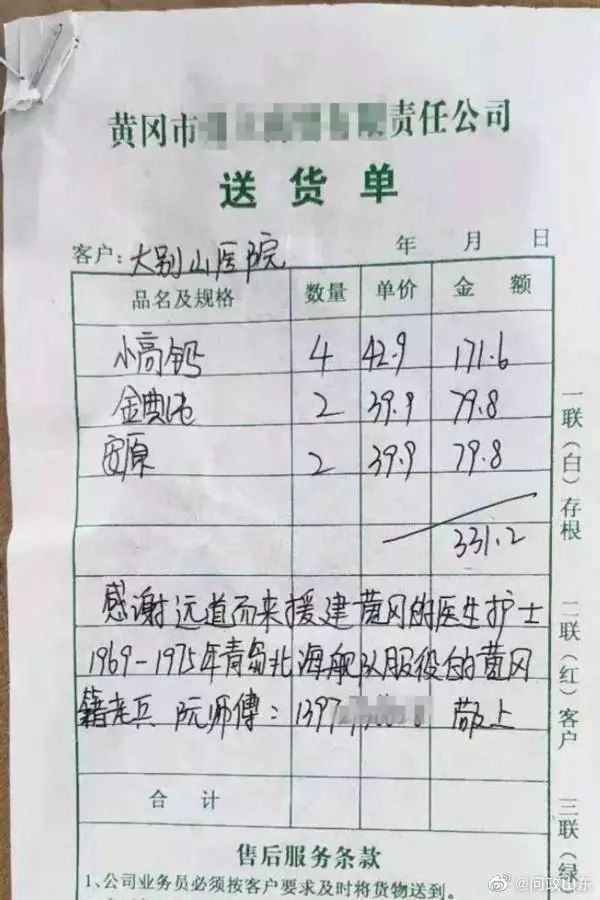 黄冈市 责任公司
送货单
客户: 大别山医院 年 月 日
品名及规格 数量 单价 金额
小高钙 4 42.9 171.6
金典 2 39.9 79.8
2 39.9 79.8
331.2
感谢远道而来援建黄冈的医生护士
1969-1975年青岛北海舰队服役的黄冈
籍老兵 阮师傅: 1397 敬上
合计
售后服务条款
1、公司业务员必须按客户要求及时将货物送到。
一联(白)存根
二联(红)客户
三联(绿)
@问政山东